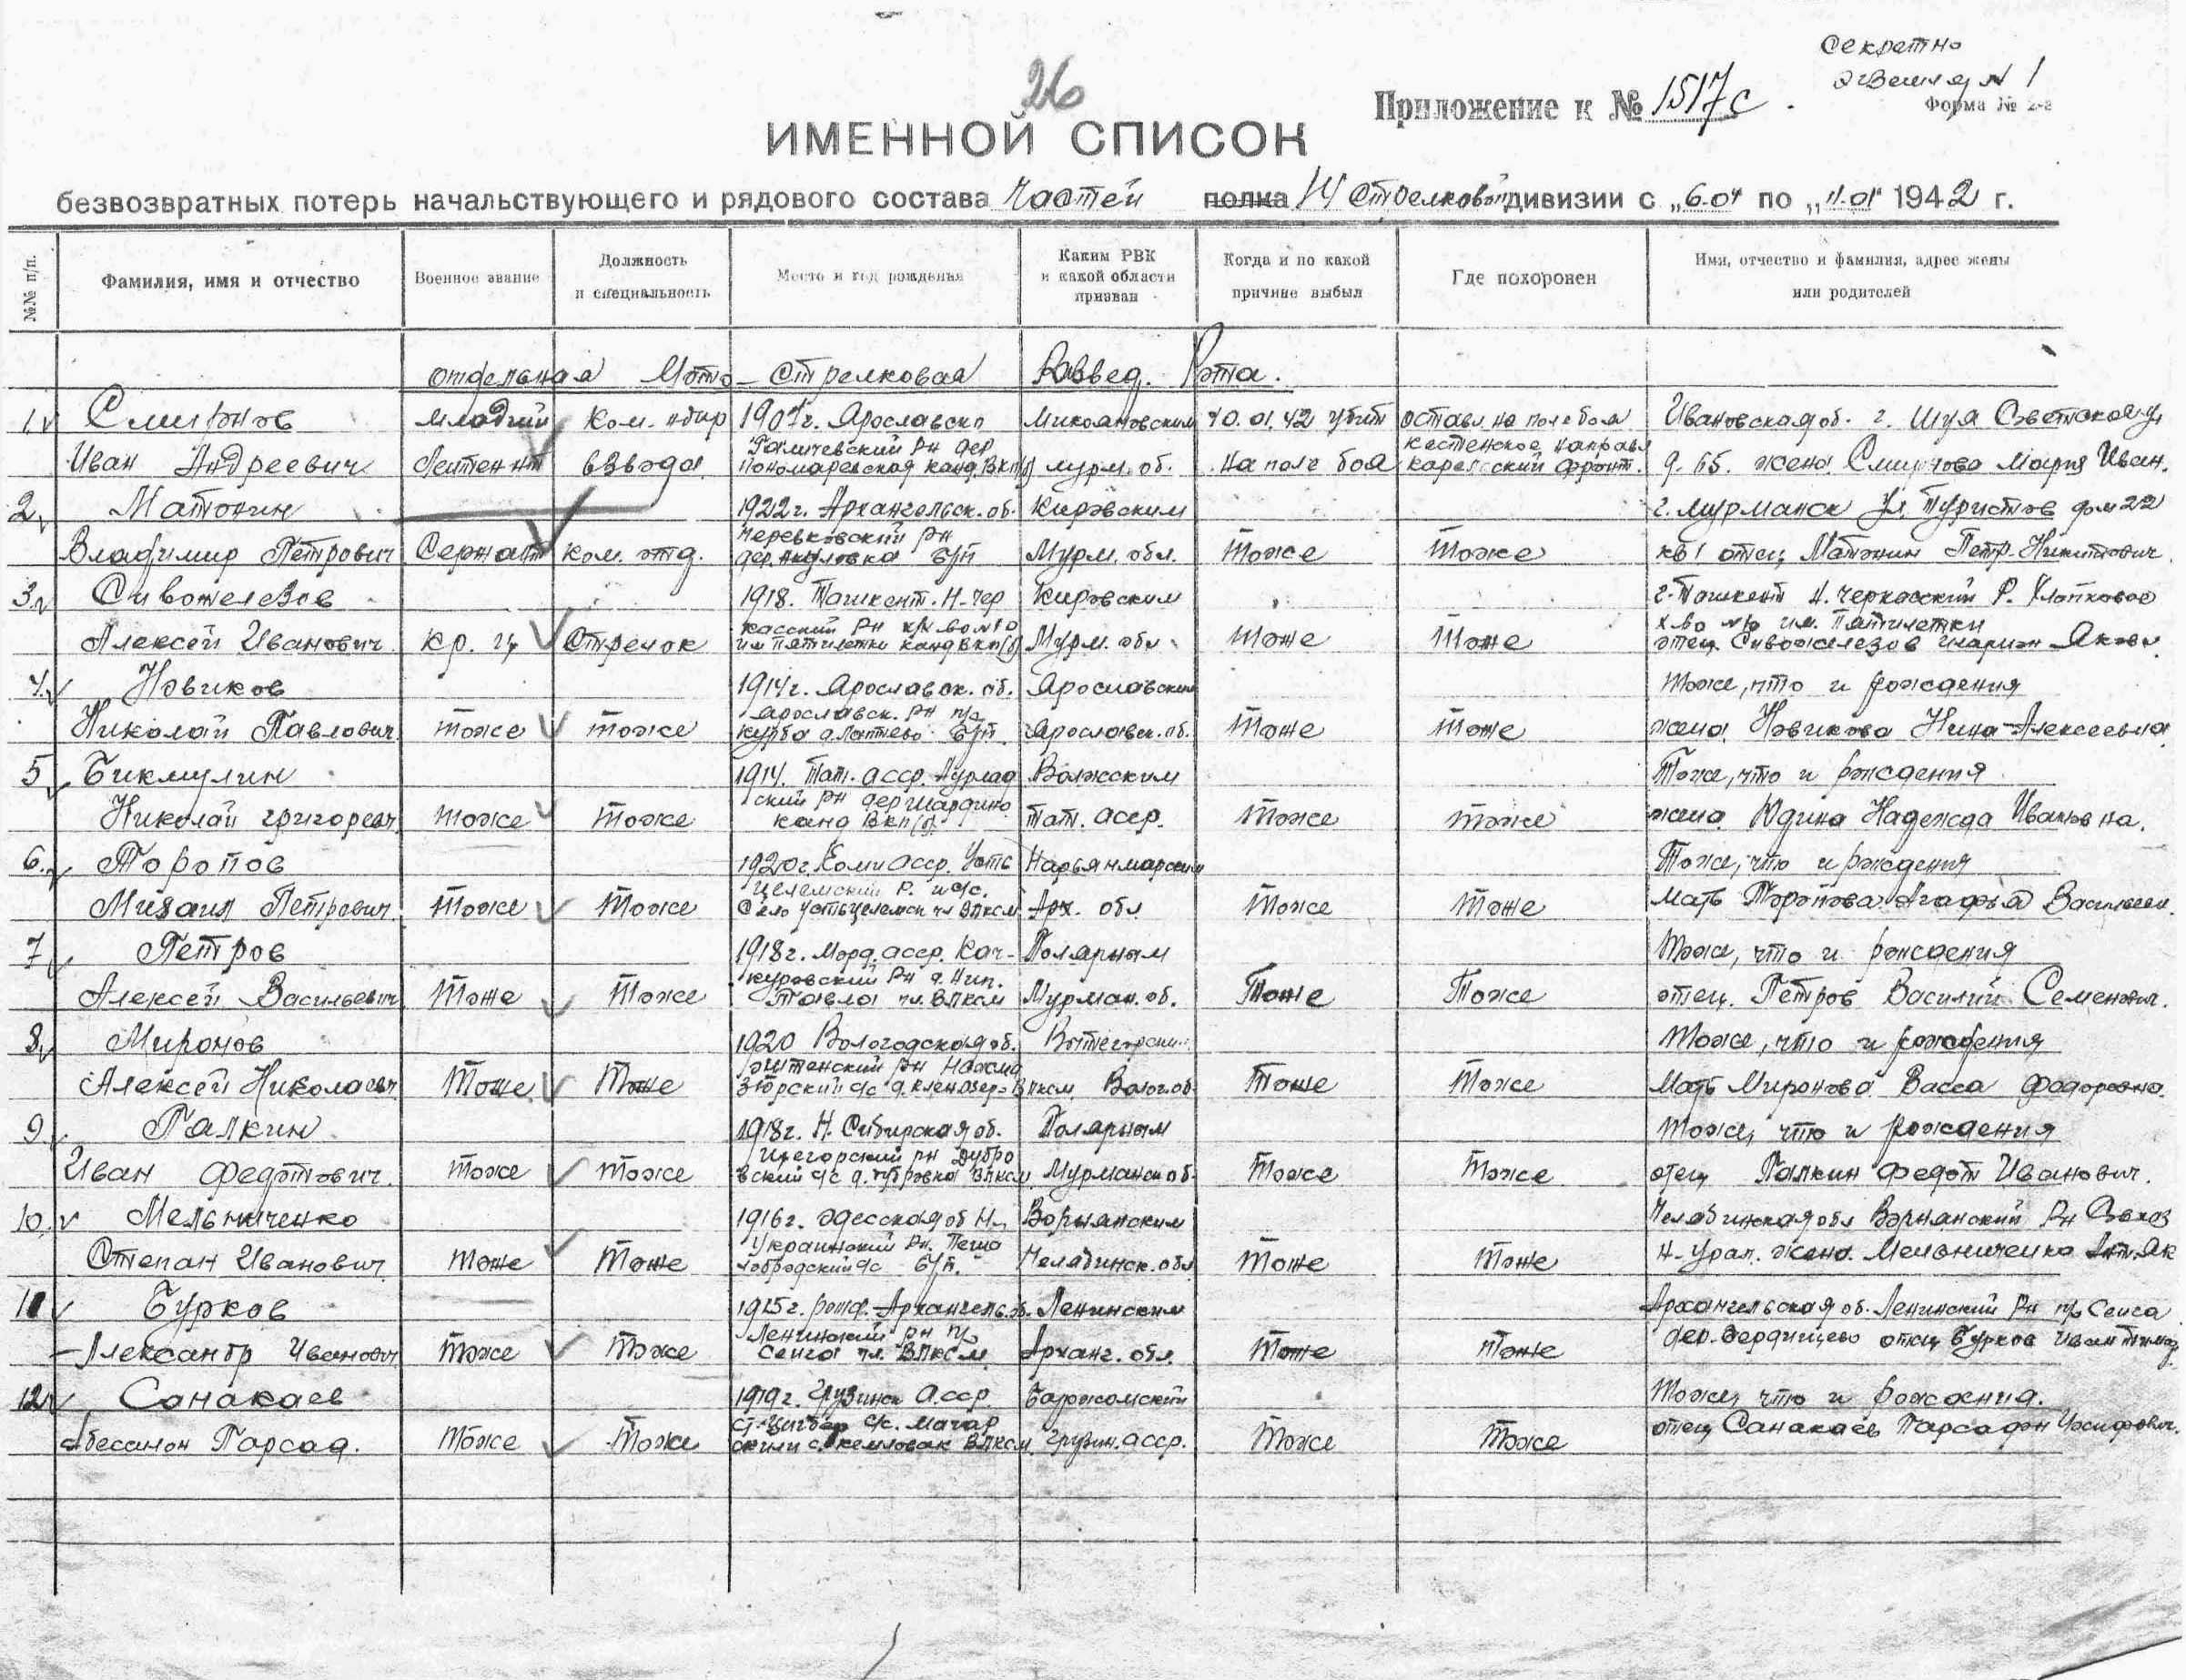 Секретно
экземпляр № 1
26
Приложение к № 1517с.
Форма № 2-а
ИМЕННОЙ СПИСОК
безвозвратных потерь начальствующего и рядового состава частей полка 14 Стрелковой дивизии с „6.01 по „11.01" 1942 г.
№№ п/п.
Фамилия, имя и отчество
Военное звание
Должность
и специальность
Место и год рожденья
Каким РВК
и какой области
призван
Когда и по какой
причине выбыл
Где похоронен
Имя, отчество и фамилия, адрес жены
или родителей
отдельная Мото-стрелковая Развед. Рота.
1. Смирнов младший Ком. 1907г. Ярославско Микояновским 10.01.42 убит оставл. на поле боя Ивановская об. г. Шуя Советская ул
Галичевский Рн дер Кестенское направл
Иван Андреевич Лейтенант взвода Пономаревская канд. ВКП(б) Мурм. об. на поле боя Карельский фронт. д. 65. жена. Смирнова Мария Иван.
2. Матонин 1922г. Архангельск. об. Кировским г. Мурманск ул. Туристов дом 22
Черевковский Рн
Владимир Петрович Сержант Ком. отд. дер. Акуловка б/п Мурм. обл. Тоже Тоже кв 1 отец Матонин Петр Никитович
3. Сивожелезов 1918. Ташкент. Н-чер Кировским г. Ташкент Н. Черкасский Р. Хлопковое
касский Рн х-во №10 х-во №10 им. Пятилетки
Алексей Иванович Кр. ец Стрелок им Пятилетки канд ВКП(б) Мурм. обл. Тоже Тоже отец. Сивожелезов Иларион Яковл.
4. Новиков 1914г. Ярославск. об. Ярославским Тоже, что и рождения
Ярославск. Рн п/о
Николай Павлович тоже тоже Курба д. Лаптево б/п. Ярославск. об. Тоже Тоже жена Новикова Нина Алексеевна
5 Бикмулин 1914. Тат. асср. Нурлад Волжским Тоже, что и рождения
ский Рн дер
Николай Григорьев Тоже Тоже канд ВКП(б) Тат. асср. Тоже Тоже жена Юдина Надежда Ивановна.
6. Торопов 1920г. Коми асср. Усть Нарьянмарским Тоже, что и рождения
Целемский Р. и с/с.
Михаил Петрович Тоже Тоже село Устьцелемск чл ВЛКСМ Арх. обл Тоже Тоже Мать Торопова Агафья Васильевн.
7 Петров 1918г. Морд. асср. Кач- Полярным Тоже, что и рождения
куровский Рн д. Нип.
Алексей Васильевич Тоже Тоже Павла чл. ВЛКСМ Мурман. об. Тоже Тоже отец. Петров Василий Семенович.
8. Миронов 1920 Вологодская об. Вытегорским Тоже, что и рождения
Алексей Николаевич Тоже Тоже ВЛКСМ Волог. об. Тоже Тоже Мать Миронова Васса Федоровна.
9. Палкин 1918г. Н. Сибирская об. Полярным Тоже, что и рождения
Рн Дубро
Иван Федотович. Тоже Тоже вский с/с д. Дубровка ВЛКСМ Мурманск об. Тоже Тоже отец Палкин Федот Иванович.
10. Мельниченко 1916г. Одесская об Н-у Варнанским Челябинская обл Варнанский Рн Совхоз
Украинский Рн.
Степан Иванович Тоже Тоже б/п. Челябинск. обл Тоже Тоже Н-Урал. жена. Мельниченко Ант. Як
11 Бурков 1915г. рожд. Архангельс. об. Ленинским Архангельская об. Ленинский Рн п/о Сенга
Ленинский Рн п/о
Александр Иванович Тоже Тоже Сенга чл. ВЛКСМ Арханг. обл. Тоже Тоже дер. отец Бурков Иван
12. Санакаев 1919г. Грузинск Асср. Боржомский Тоже, что и рождения.
с/с.
Абессалон Парсад. Тоже Тоже ВЛКСМ. Грузин. асср. Тоже Тоже отец Санакаев Парсадон